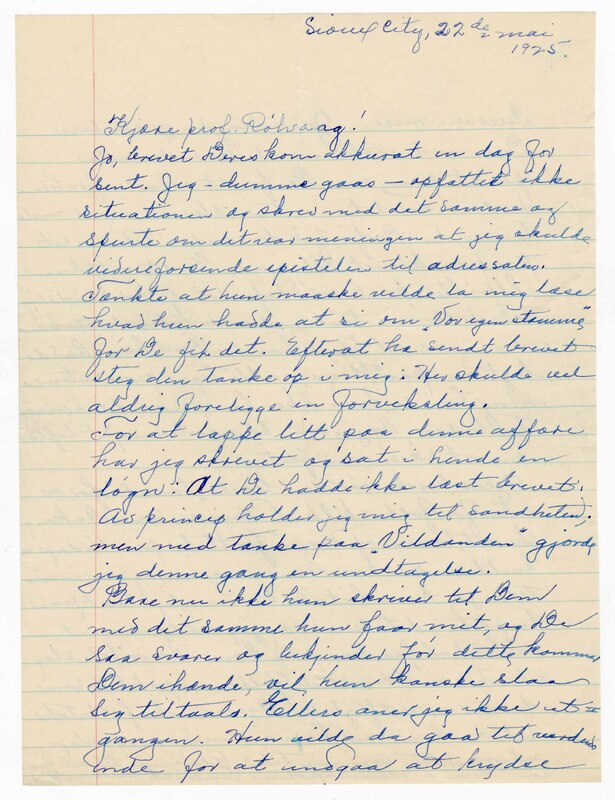 Sioux City, 22de mai
1925.
Kjære prof. Rölvaag!
Jo, brevet Deres kom akkurat en dag for
sent. Jeg – dumme gaas – opfattet ikke
situationen og skrev med det samme og
spurte om det var meningen at jeg skulde
videreforsende epistelen til adressaten.
Tænkte at hun maaske vilde la mig læse
hvad hun hadde at si om „Vor egen stamme"
før De fik det. Efterat ha sendt brevet
steg den tanke op i mig: Her skulde vel
aldrig foreligge en forveksling.
For at lappe litt paa denne affære
har jeg skrevet og sat i hende en
løgn: At De hadde ikke læst brevet.
Av princip holder jeg mig til sandheten,
men med tanke paa „Vildanden" gjorde
jeg denne gang en undtagelse.
Bare nu ikke hun skriver til Dem
med det samme hun faar mit, og De
saa svarer og bekjender før dette kommer
Dem ihænde, vil hun kanske slaa
sig tiltaals. Ellers aner jeg ikke ut=
gangen. Hun vilde da gaa til verdens
ende for at undgaa at krydse